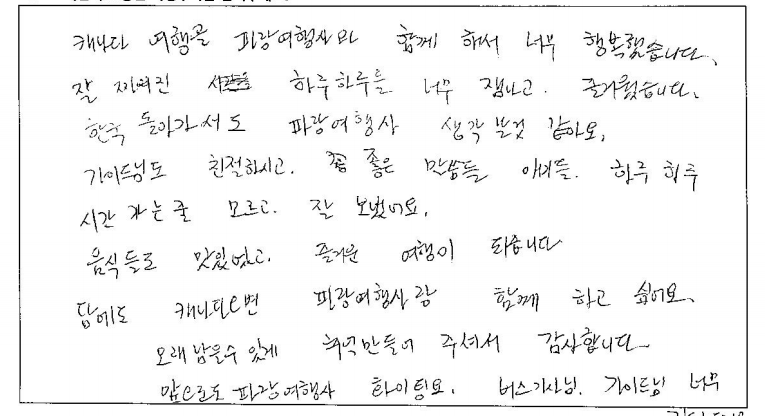 캐나다 여행을 파랑여행사와 함께 해서 너무 행복했습니다.
잘 짜여진 하루하루를 너무 잼나고. 즐거웠습니다.
한국 돌아가서도 파랑여행사 생각 날것 같아요.
가이드님도 친절하시고. 좋은 말씀들 얘기들. 하루 하루
시간 가는줄 모르고. 잘 보냈어요.
음식들도 맛있었고. 즐거운 여행이 되습니다
담에도 캐나다 파랑여행사랑 함께 하고 싶어요.
오래 남을수 있게 추억만들어 주셔서 감사합니다
앞으로도 파랑여행사 화이팅요. 버스기사님. 가이드님 너무